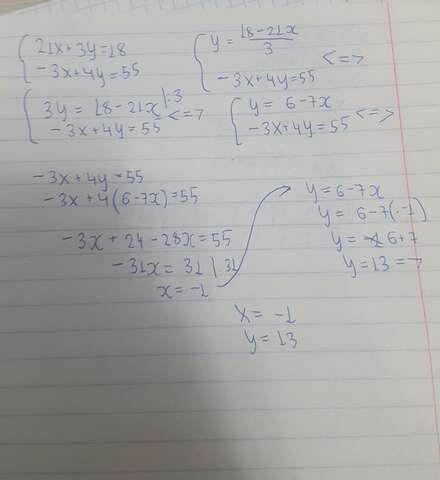 21x+3y=18
-3x+4y=55
y = 18-21x/3
-3x+4y=55 <=>
3y = 18-21x |:3
-3x+4y=55 <=>
y = 6-7x
-3x+4y=55 <=>
-3x+4y=55
-3x+4(6-7x)=55
-3x+24-28x=55
-31x = 31 |:31
x = -1
y=6-7x
y= 6-7(.-1)
y= 6+7
y=13 =>
x= -1
y= 13